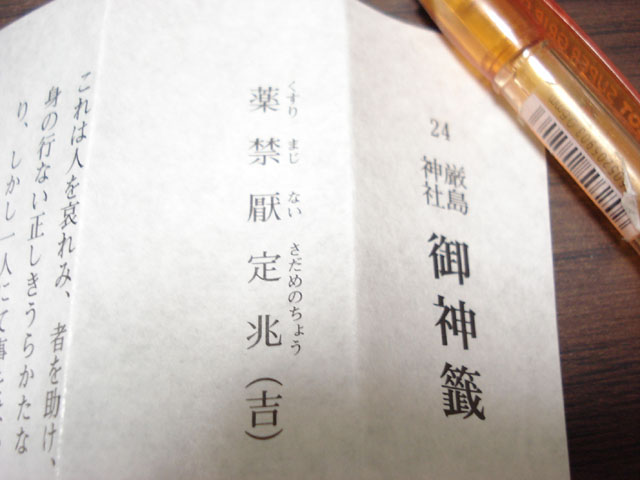 24 厳島神社 御神籤
くすり まじ ない さだめのちょう
薬禁厭定兆(吉)
これは人を哀れみ、者を助け、
身の行ない正しきうらかたな
り、しかし一人にて事を